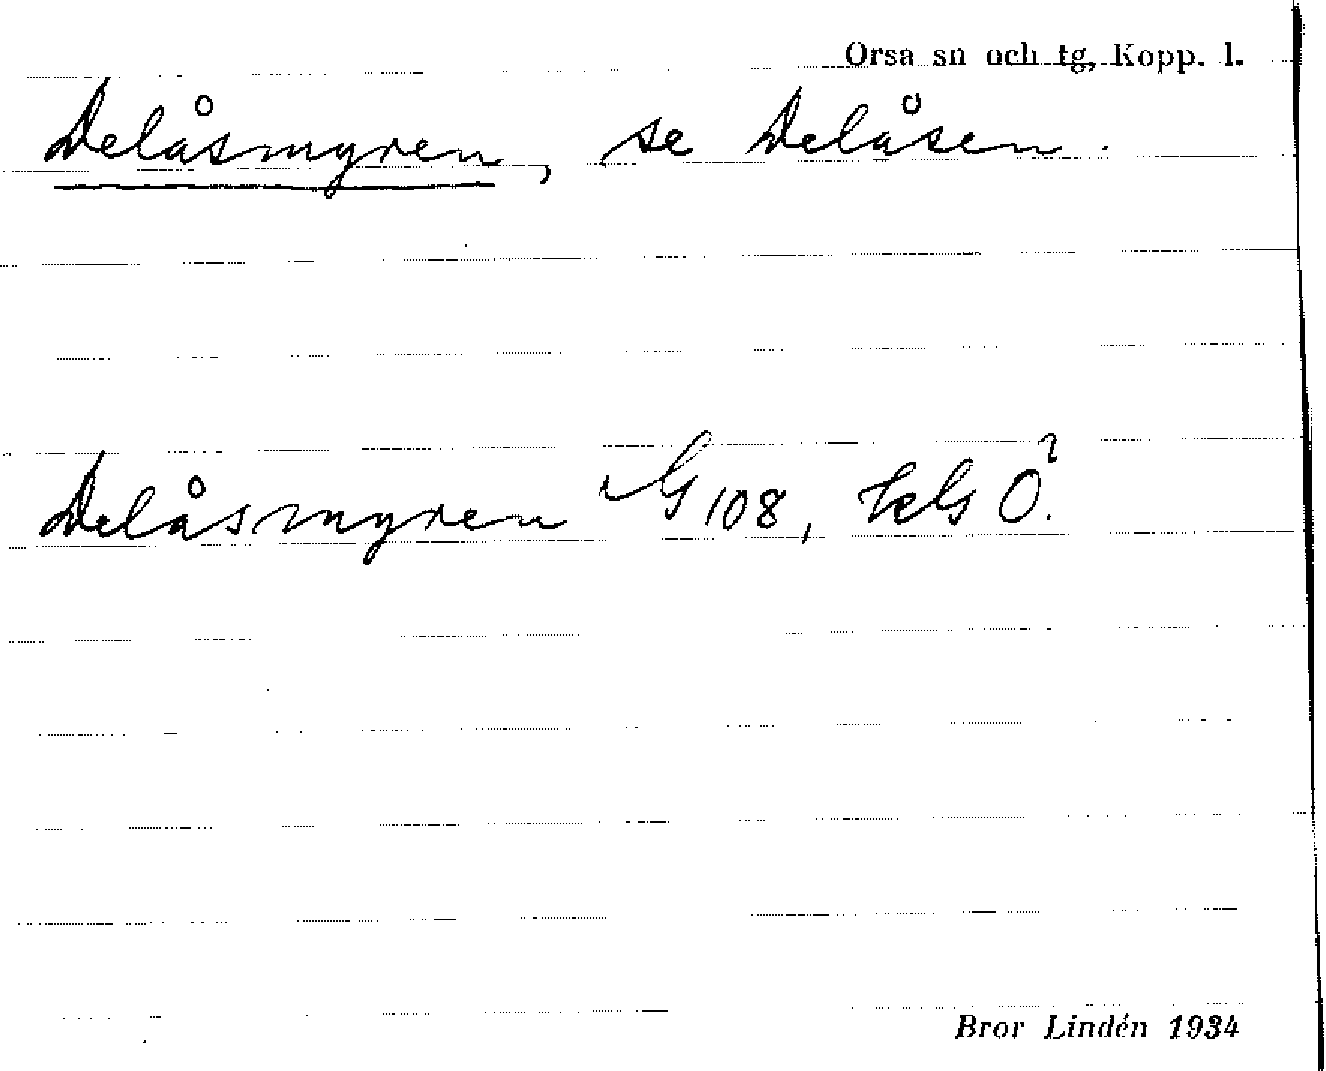 Orsa sn och tg, Kopp. l.
Delåsmyren, se Delåsen.
Delåsmyren G 108, O?
Bror Lindén 1934